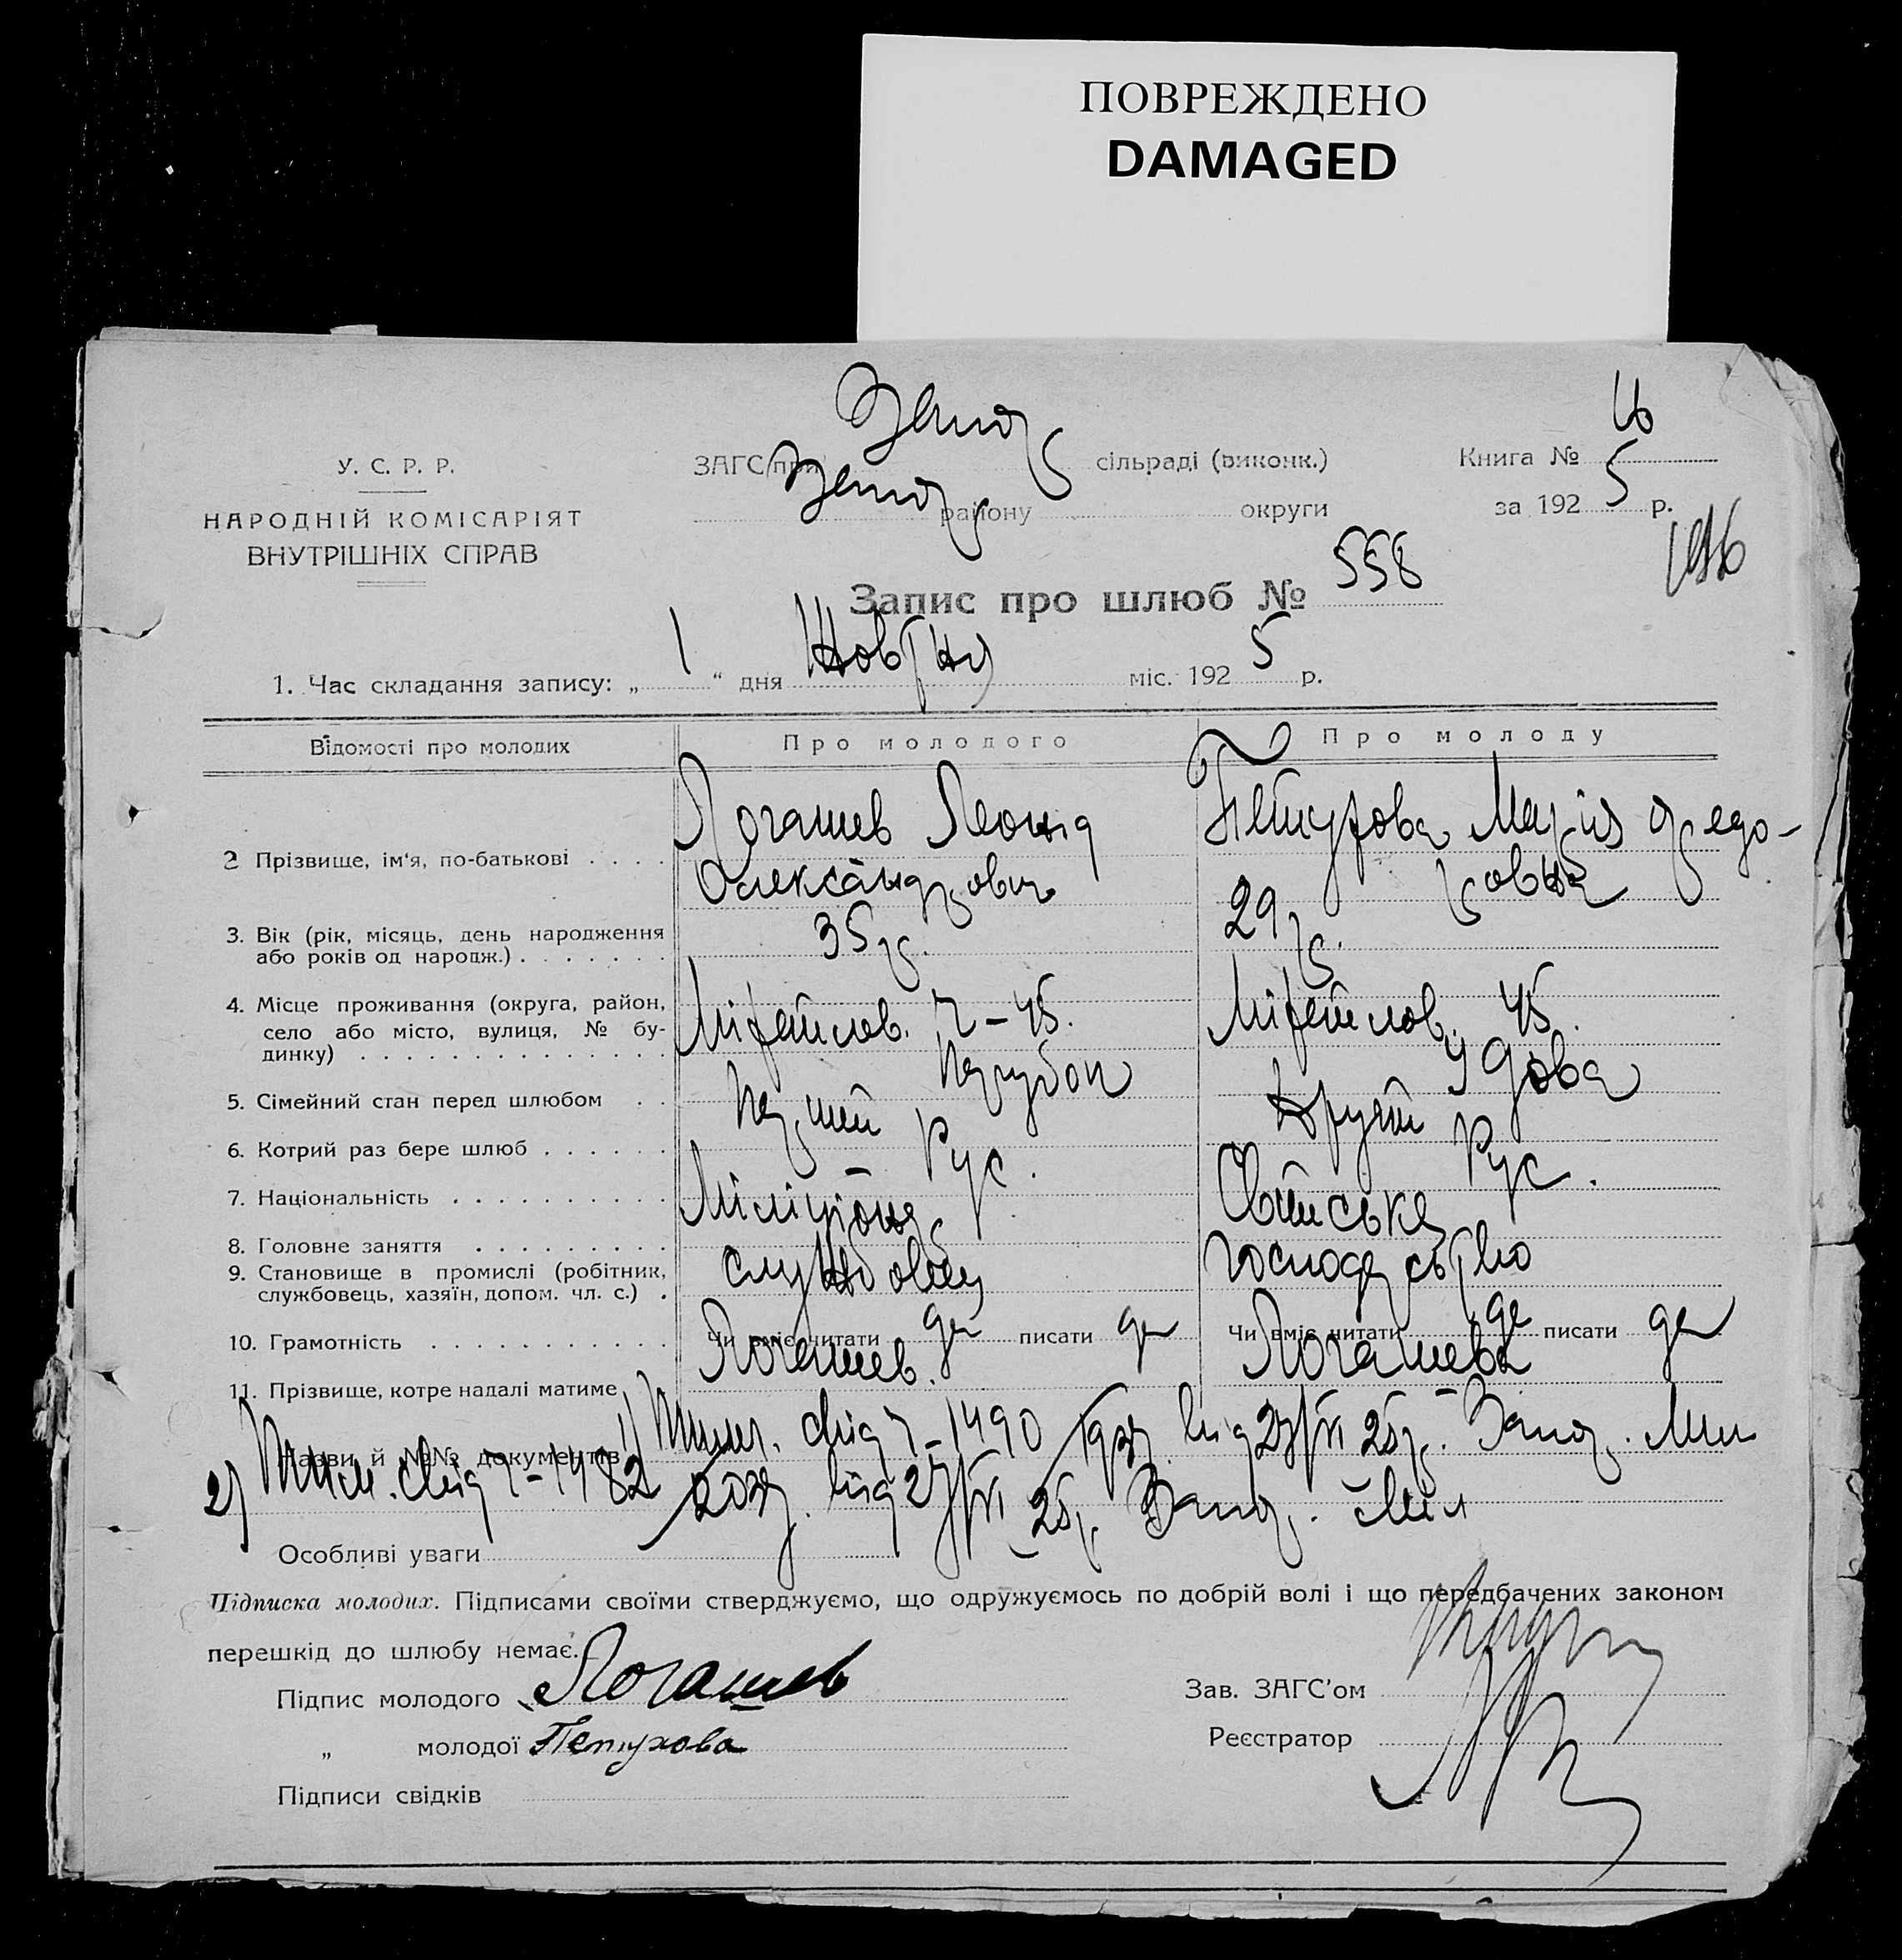 ПОВРЕЖДЕНО
DAMAGED
У. С. Р. Р.
НАРОДНІЙ КОМІСАРІЯТ
ВНУТРІШНІХ СПРАВ
ЗАГС при Запор сільраді (виконк.)
Запор району округи
Книга №
за 192 5 р.
Запис про шлюб № 558
1. Час складання запису: „ 1 “ дня Жовтня міс. 192 5 р.
Відомості про молодих Про молодого Про молоду
2 Прізвище, ім'я, по-батькові . . . . Логашев Леонід Олександрович Петухова Марія Федоровна
3. Вік (рік, місяць, день народження
або років од народж.) . . . . . . . 35 р. 29 р.
4. Місце проживання (округа, район,
село або місто, вулиця, № бу-
динку) . . . . . . . . . . . . . . 45. 45.
5. Сімейний стан перед шлюбом . . Парубок Удова
6. Котрий раз бере шлюб . . . . . . Перший Другий
7. Національність . . . . . . . . . . Рус. Рус.
8. Головне заняття . . . . . . . . . Міліціонер Світське
9. Становище в промислі (робітник,
службовець, хазяїн, допом. чл. с.) . службовець господарство
10. Грамотність . . . . . . . . . . . Чи вміє читати да писати да Чи вміє читати да писати да
11. Прізвище, котре надалі матиме Логашев. Логашева
Назви й №№ документів 1) 1490 від 25р. Запор. Міл
2) 1482 від 25р. Запор. Міл
Особливі уваги
Підписка молодих. Підписами своїми стверджуємо, що одружуємось по добрій волі і що передбачених законом
перешкід до шлюбу немає.
Підпис молодого Логашев
„ молодої Петухова
Підписи свідків
Зав. ЗАГС'ом
Реєстратор